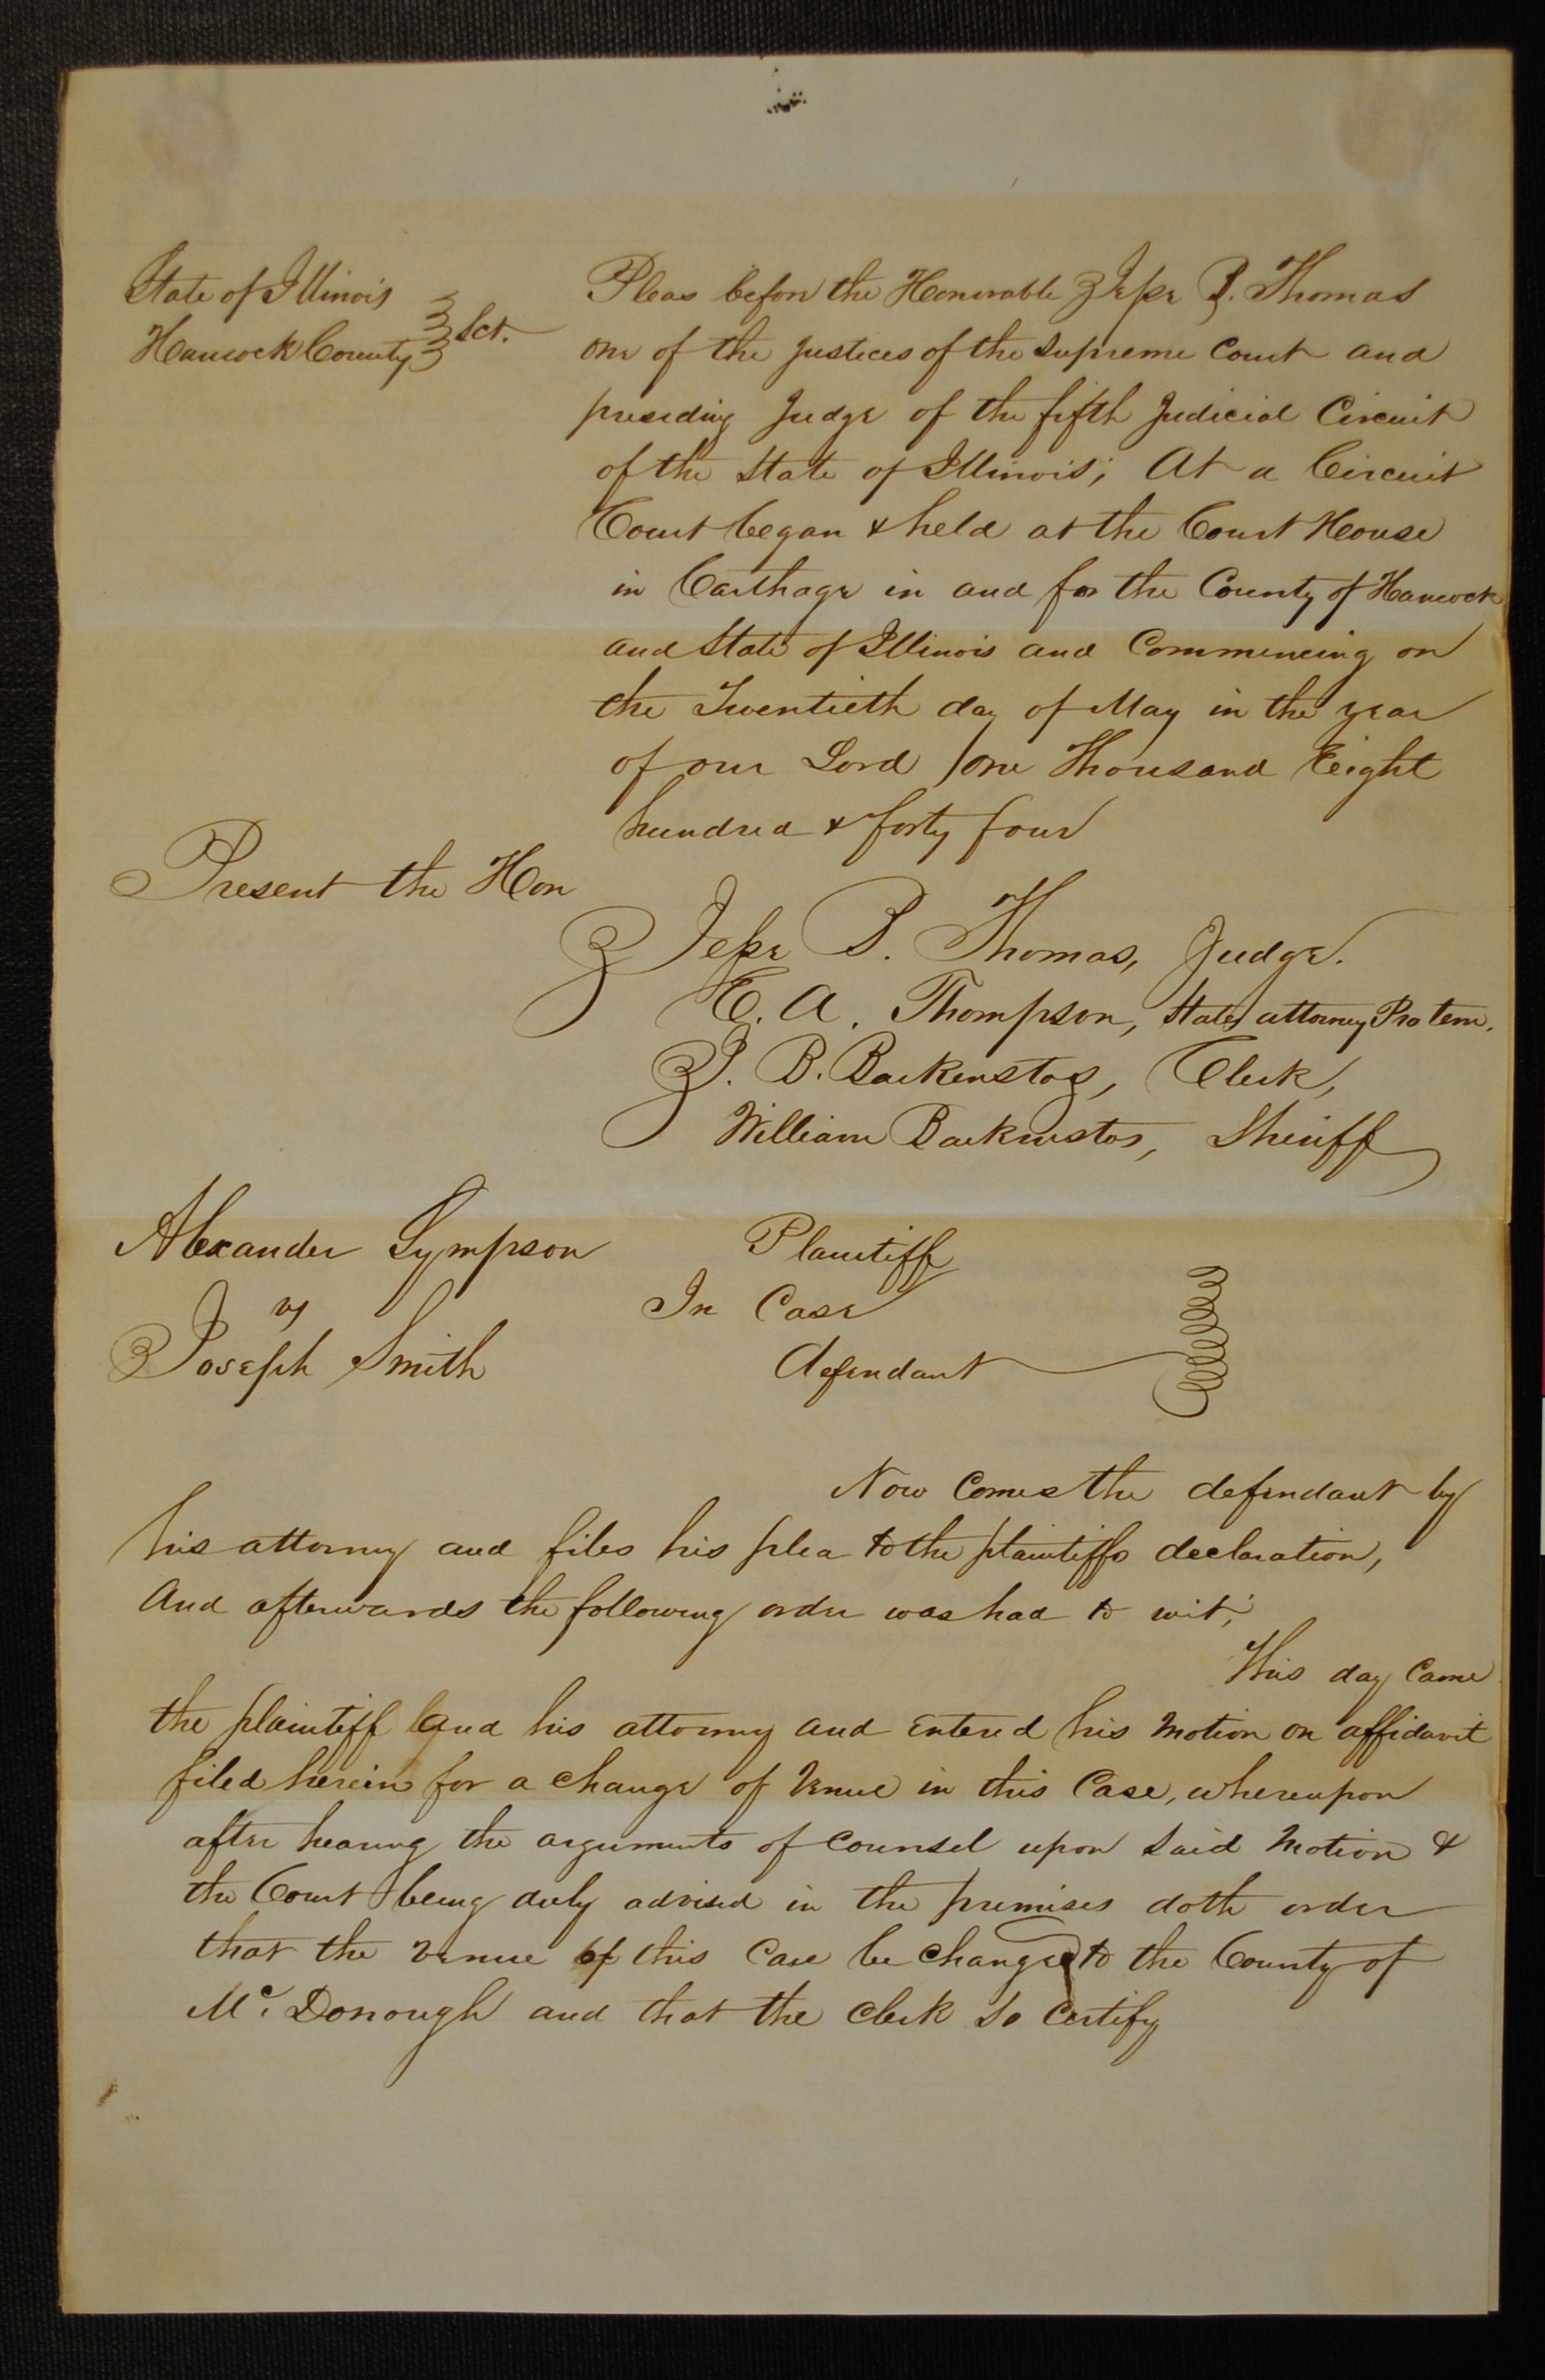 State of Illinois
Hancock County } Sct.
Pleas before the Honorable Jesse B. Thomas
one of the justices of the supreme Court and
presiding Judge of the fifth Judicial Circuit
of the State of Illinois; At a Circuit
Court began & held at the Court House
in Carthage in and for the County of Hancock
and State of Illinois and Commencing on
the Twentieth day of May in the year
of our Lord one Thousand Eight
hundred & forty four
Present the Hon
Jesse B. Thomas, Judge.
E. A. Thompson, States attorney Pro tem.
J. B. Backenstos, Clerk,
William Backenstos, Sheriff
Alexander Sympson Plaintiff
vs In Case
Joseph Smith defendant
Now Comes the defendant by
his attorney and files his plea to the plaintiffs declaration,
And afterwards the following order was had to wit;
This day Came
the plaintiff and his attorney and entered his motion on affidavit
filed herein for a change of Venue in this Case, whereupon
after hearing the arguments of Counsel upon said motion &
the Court being duly advised in the premises doth order
that the venue of this Case be changed to the County of
Mc. Donough and that the Clerk so Certify